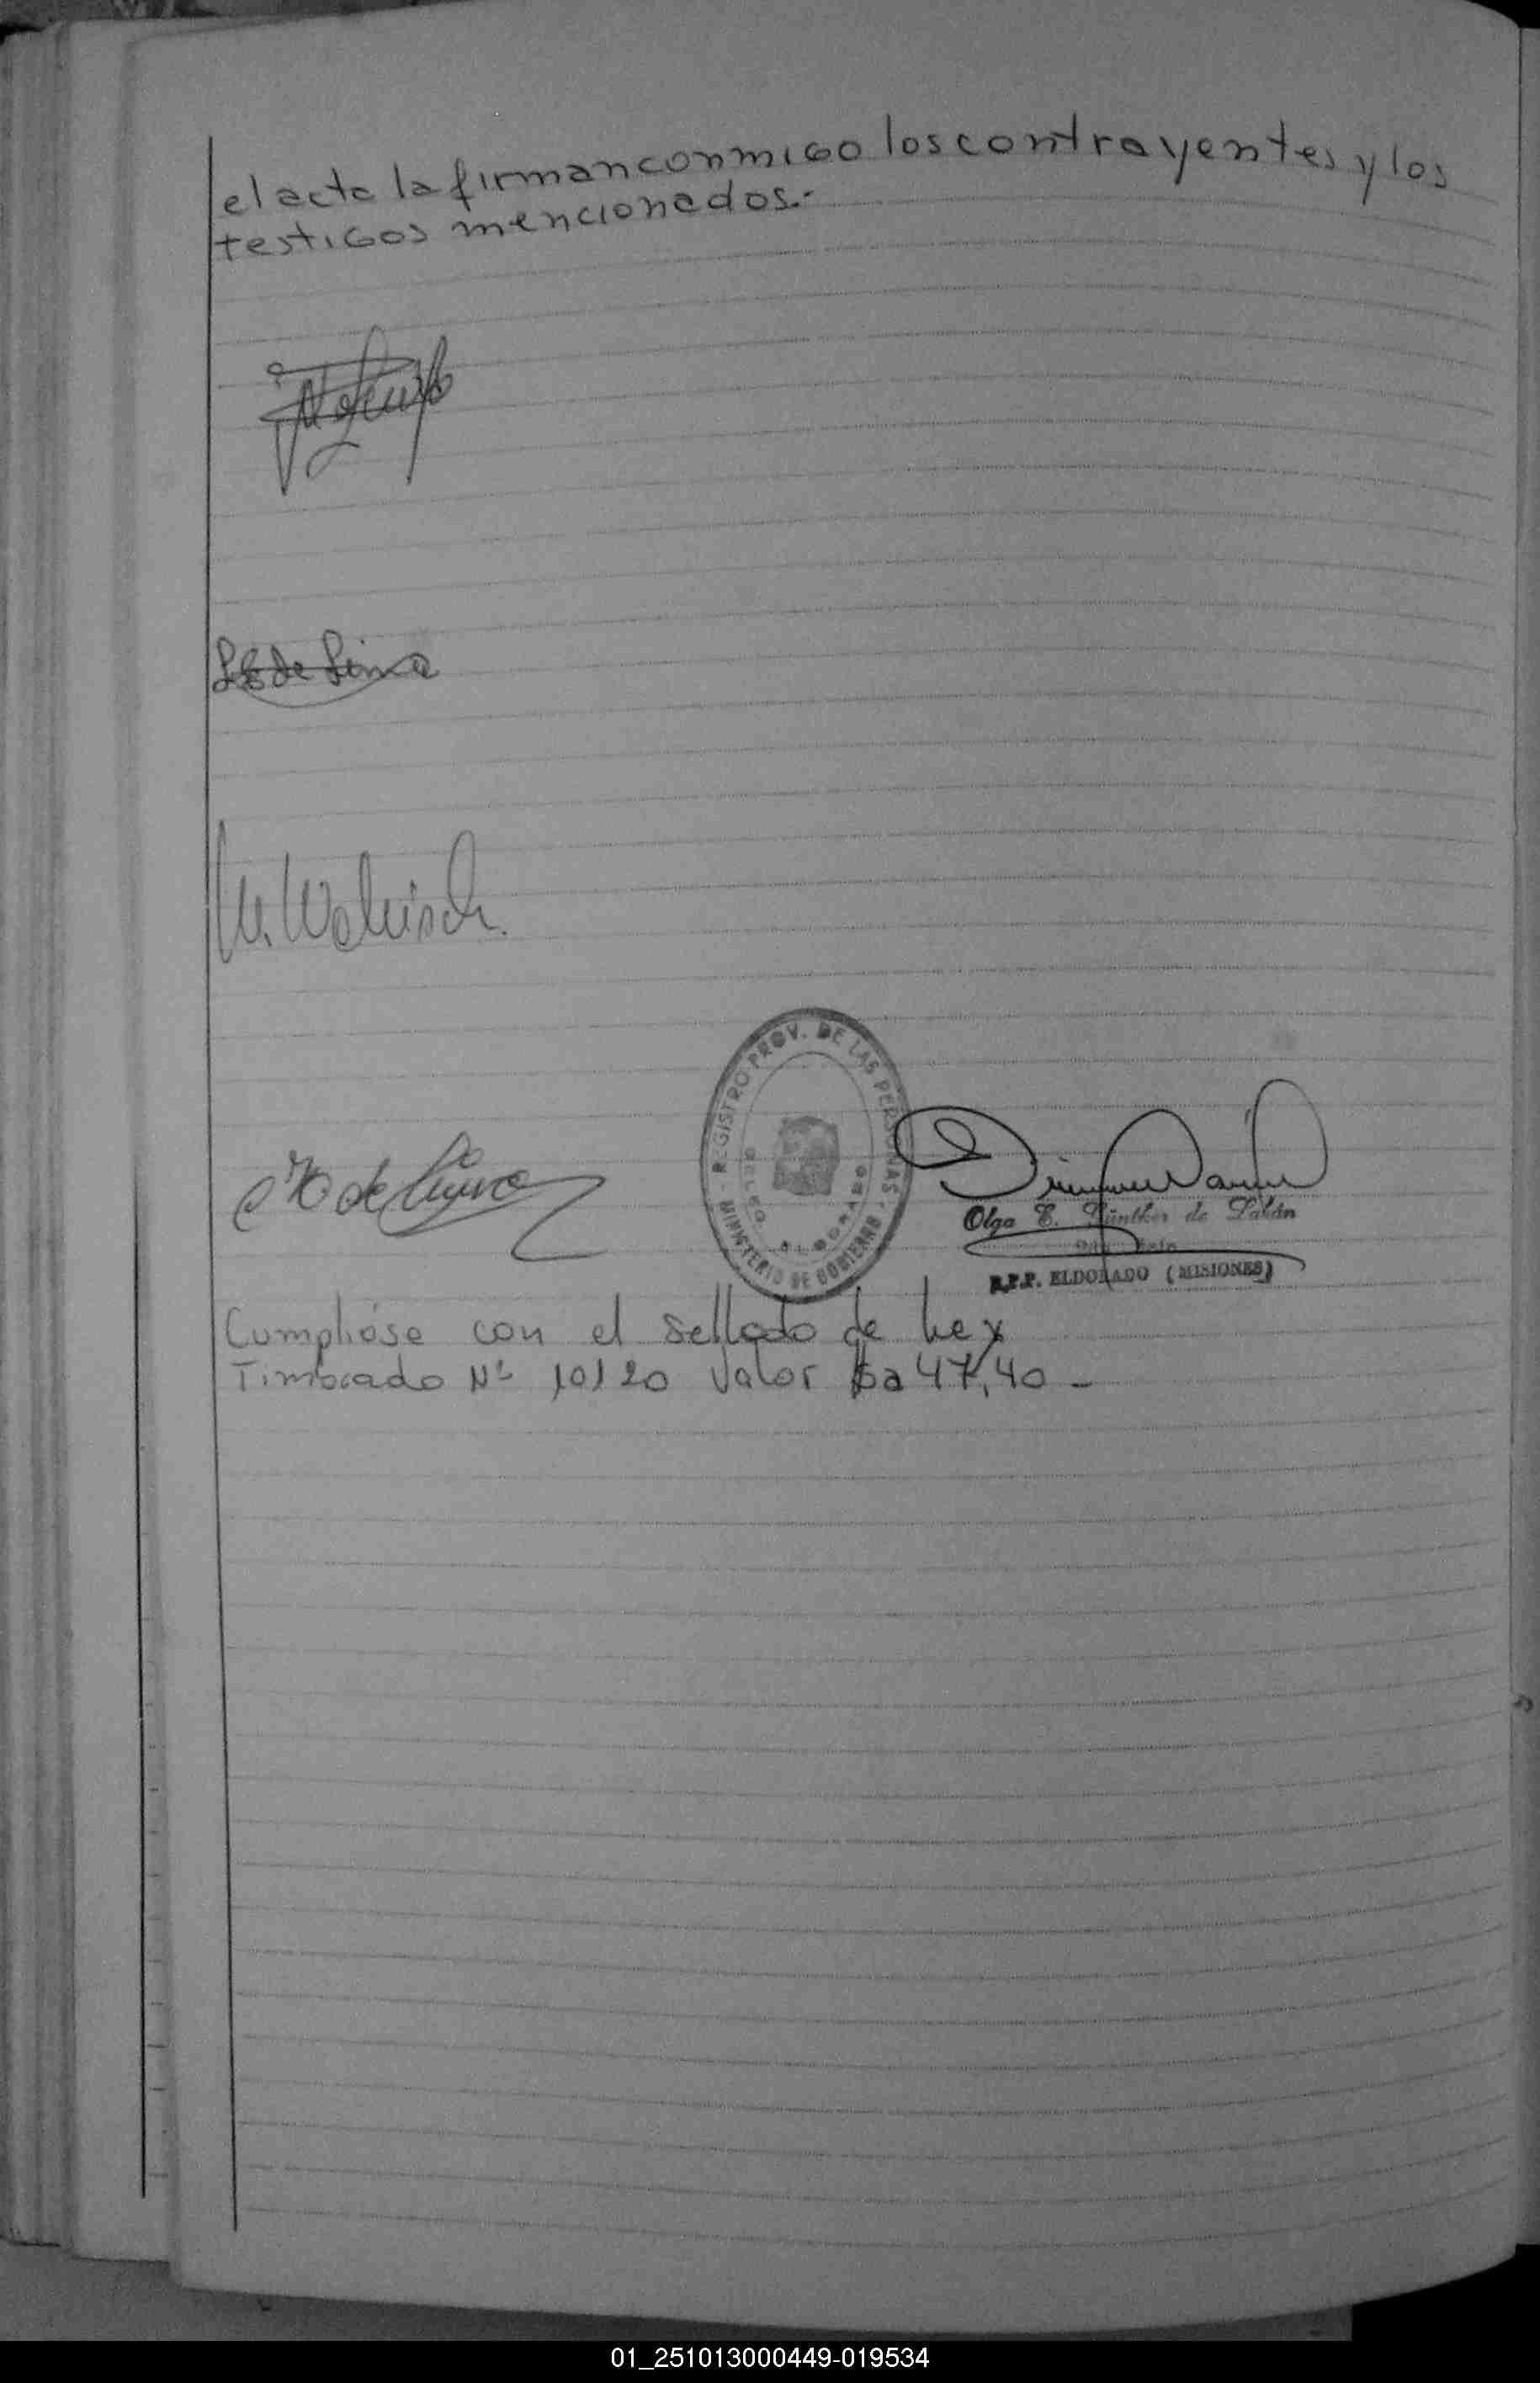 el acta la firman conmigo los contrayentes y los
testigos mencionados.-
de Lima
de Lima
REGISTRO PROV. DE LAS PERSONAS
MINISTERIO DE GOBIERNO
ELDORADO
Olga E. de
R.P.P. ELDORADO (MISIONES)
Cumplióse con el sellado de Ley
Timbrado Nº 10120 Valor $a 47,40 -
01_251013000449-019534